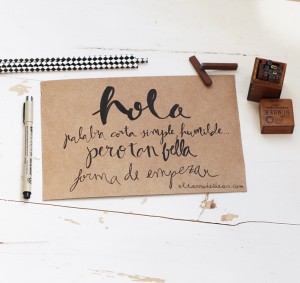 hola
palabra corta simple humilde...
pero tan bella
forma de empezar